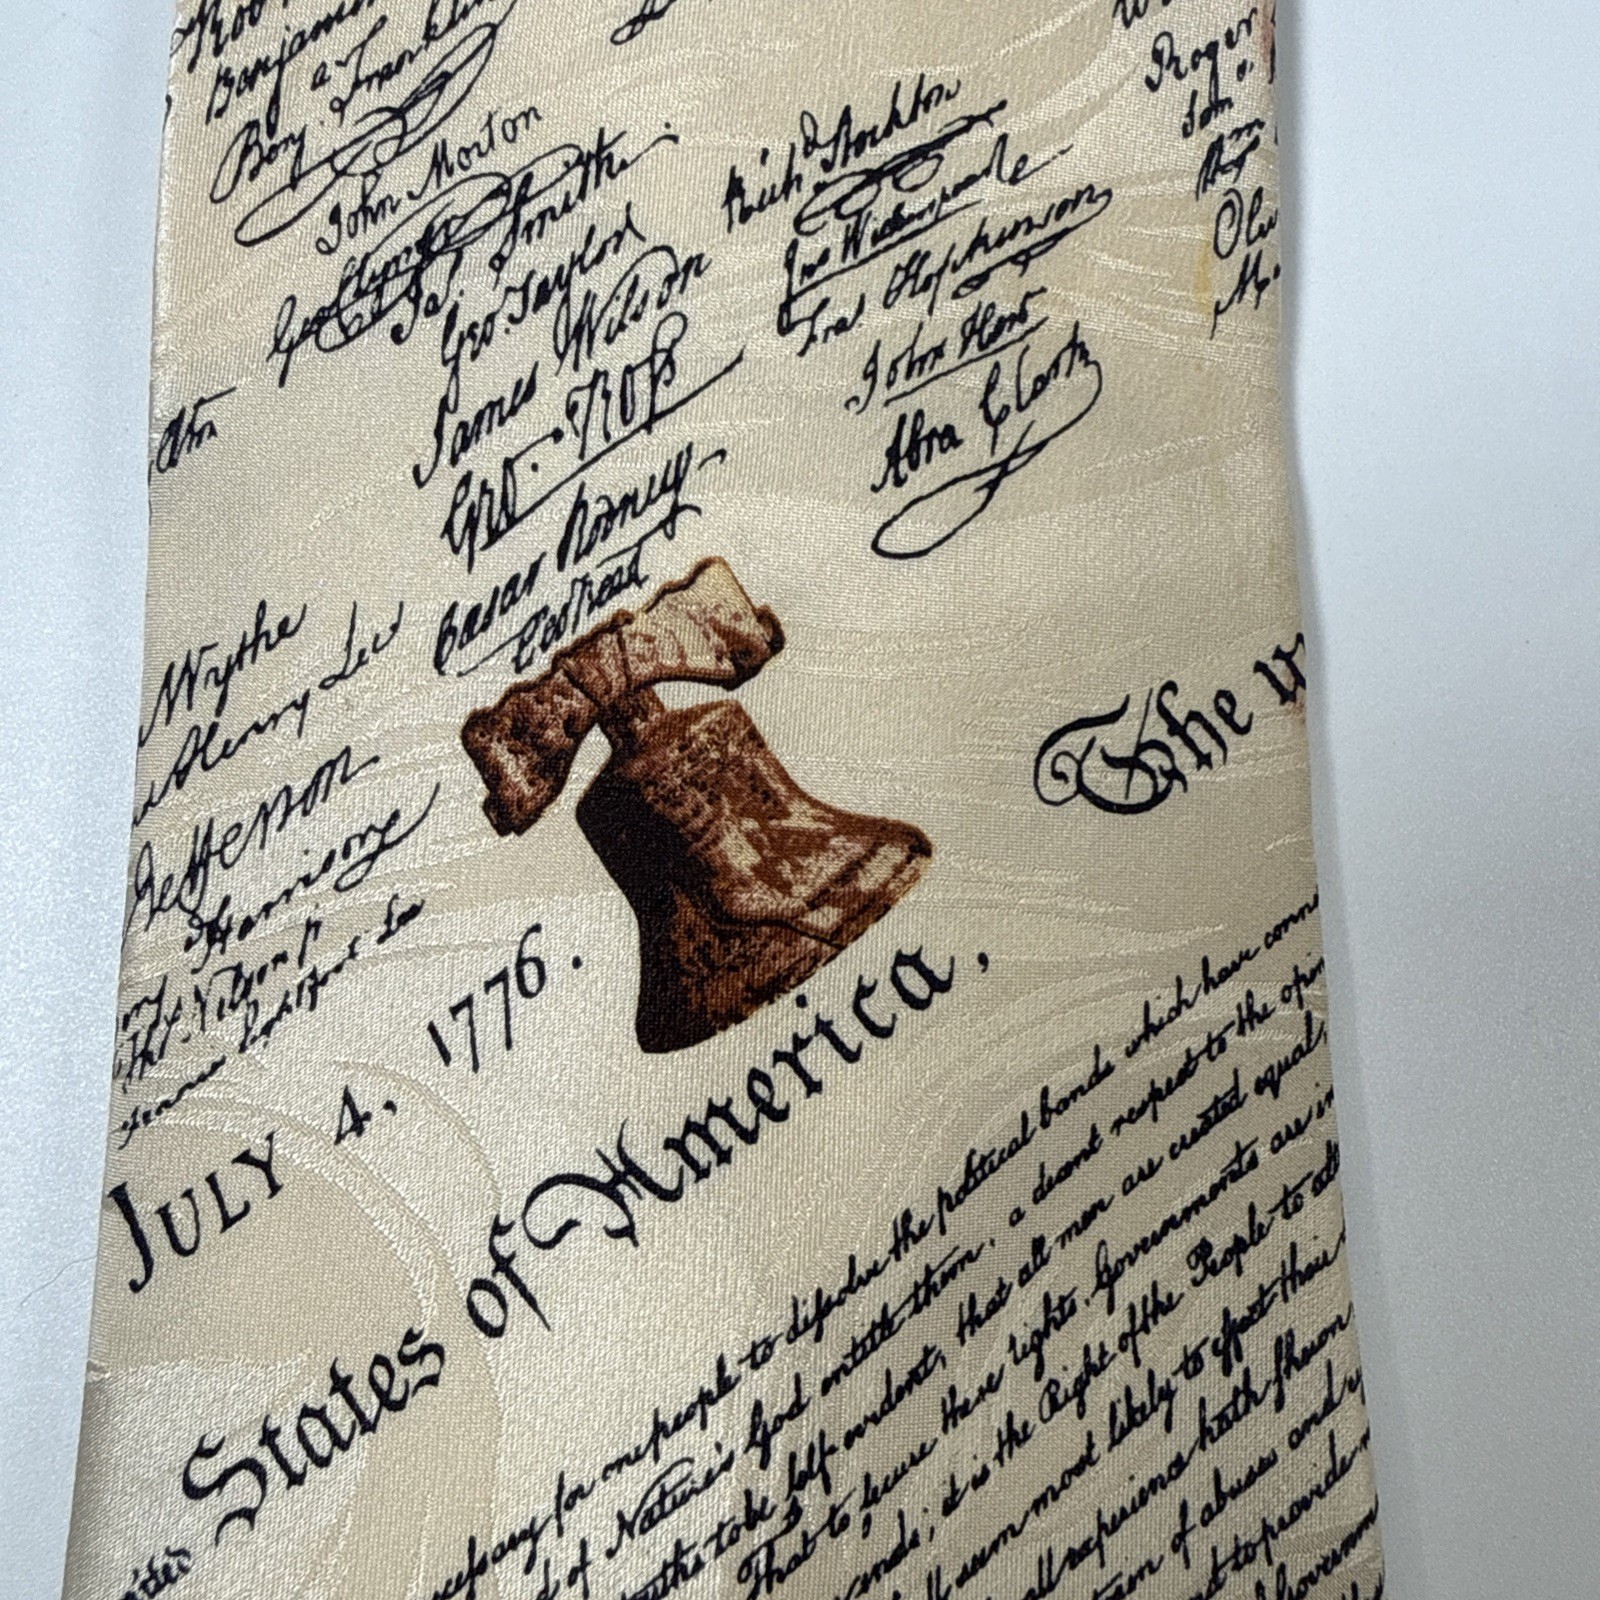 Benjamin
Benj. Franklin
John Morton
Geo Clymer
Jas. Smith.
Geo. Taylor
James Wilson
Geo. Ross
Caesar Rodney
Geo Read
Rich Stockton
Jno Witherspoon
Fras. Hopkinson
John Hart
Abra Clark
Roger
Sam
Wm
Oliv
Wythe
Henry Lee
Jefferson
Harrison
Thos. Nelson jr
Francis Lightfoot Lee
JULY 4, 1776.
The u
States of America,
cessary for one people to dissolve the political bands which have conne
d of Nature's God entitle them, a decent respect to the opin
truths to be self-evident, that all men are created equal,
That to secure these rights, Governments are in
ends; it is the Right of the People to alt
ll seem most likely to effect their
all experience hath shewn
train of abuses and
to provide
Governm